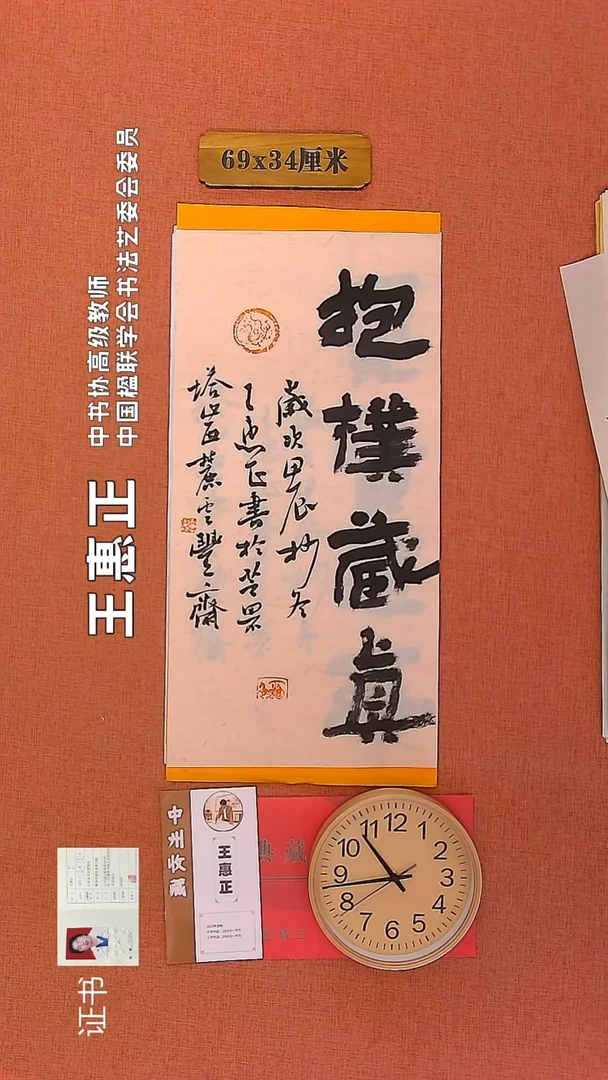 69x34厘米
中书协高级教师
中国楹联学会书法艺委会委员
王惠正
抱樸藏真
歲次甲辰抄冬
王惠正書於
塔山西麓雲豐齋
中州收藏
王惠正
典藏
12
1
2
3
4
5
6
7
8
9
10
11
证书